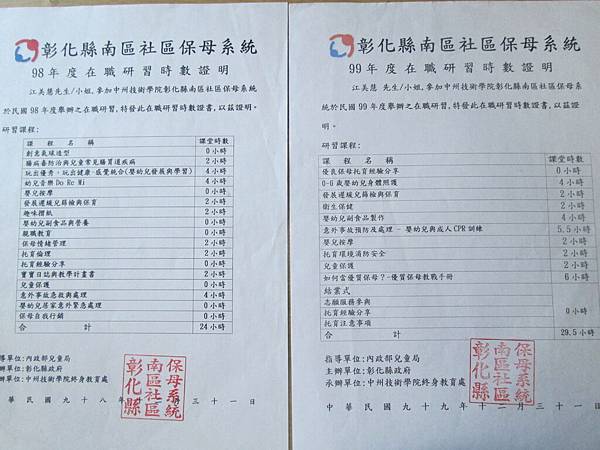 彰化縣南區社區保母系統
98年度在職研習時數證明
江美慧 先生/小姐,參加中州技術學院彰化縣南區社區保母系統
於民國98年度舉辦之在職研習,特發此在職研習時數證書,以茲證明。
研習課程:
課 程 名 稱 課堂時數
創意氣球造型 0小時
腸病毒防治與兒童常見腸胃道疾病 2小時
玩出優秀,玩出健康-感覺統合(嬰幼兒發展與學習) 4小時
幼兒音樂 Do Re Mi 4小時
嬰兒按摩 0小時
發展遲緩兒篩檢與保育 2小時
趣味摺紙 2小時
嬰幼兒副食品與營養 0小時
親職教育 0小時
保母情緒管理 2小時
托育倫理 2小時
托育經驗分享 0小時
寶寶日誌與教學計畫書 2小時
兒童保護 0小時
意外事故急救與處理 4小時
嬰幼兒居家意外緊急處理 0小時
保母自我行銷 0小時
合 計 24小時
導單位:內政部兒童局
辦單位:彰化縣政府
辦單位:中州技術學院終身教育處
華 民 國 九 十 八 年 三 十 一 日
保母系統
南區社區
彰化縣
彰化縣南區社區保母系統
99年度在職研習時數證明
江美慧 先生/小姐,參加中州技術學院彰化縣南區社區保母系
統於民國99年度舉辦之在職研習,特發此在職研習時數證書,以茲證
明。
研習課程:
課 程 名 稱 課堂時數
優良保母托育經驗分享 0小時
0-6歲嬰幼兒身體照護 4小時
發展遲緩兒篩檢與保育 2小時
衛生保健 2小時
嬰幼兒副食品製作 4小時
意外事故預防及處理 - 嬰幼兒與成人CPR訓練 5.5小時
嬰兒按摩 2小時
托育環境消防安全 2小時
兒童保護 2小時
如何當優質保母?-優質保母教戰手冊 6小時
結業式
志願服務參與
托育經驗分享 0小時
托育注意事項
合 計 29.5小時
指導單位:內政部兒童局
主辦單位:彰化縣政府
承辦單位:中州技術學院終身教育處
中 華 民 國 九 十 九 年 十 二 月 三 十 一 日
保母系統
南區社區
彰化縣